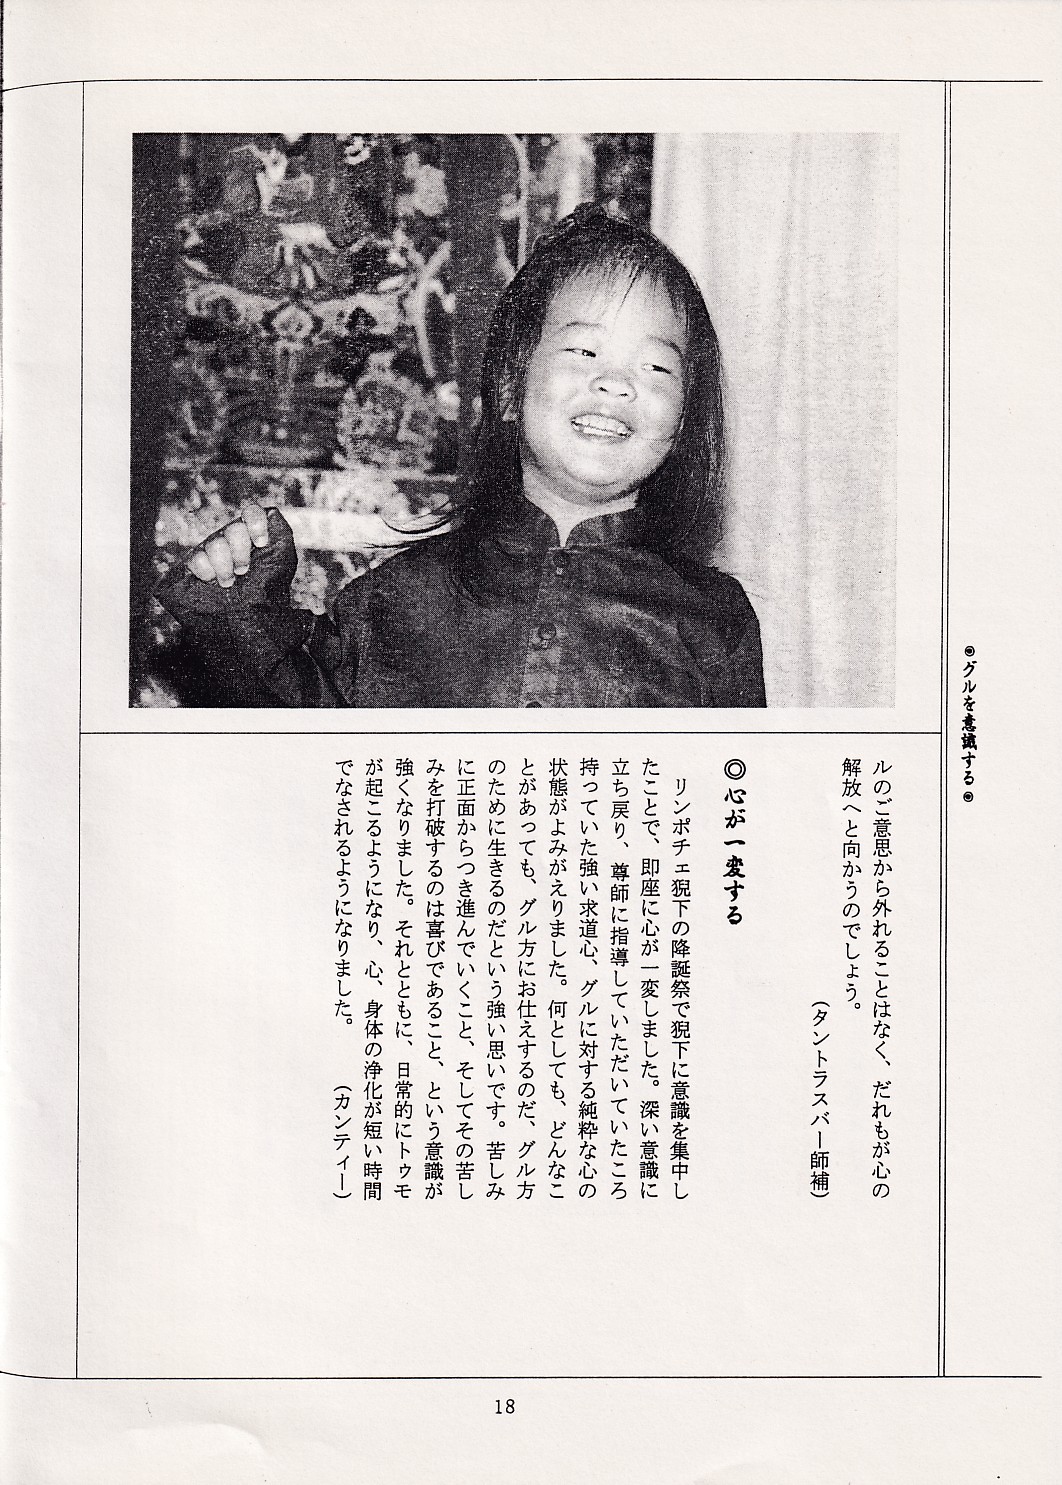 ◎グルを意識する◎
ルのご意思から外れることはなく、だれもが心の
解放へと向かうのでしょう。
（タントラスバー師補）
◎心が一変する
リンポチェ猊下の降誕祭で猊下に意識を集中し
たことで、即座に心が一変しました。深い意識に
立ち戻り、尊師に指導していただいていたころ
持っていた強い求道心、グルに対する純粋な心の
状態がよみがえりました。何としても、どんなこ
とがあっても、グル方にお仕えするのだ、グル方
のために生きるのだという強い思いです。苦しみ
に正面からつき進んでいくこと、そしてその苦し
みを打破するのは喜びであること、という意識が
強くなりました。それとともに、日常的にトゥモ
が起こるようになり、心、身体の浄化が短い時間
でなされるようになりました。（カンティー）
18